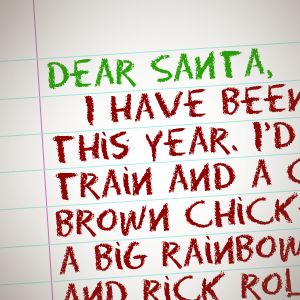 DEAR SANTA,
I HAVE BEEN
THiS YEAR. I'D
TRAiN AND A
BROWN CHiCK
A BiG RAiNBOW
AND RiCK ROL